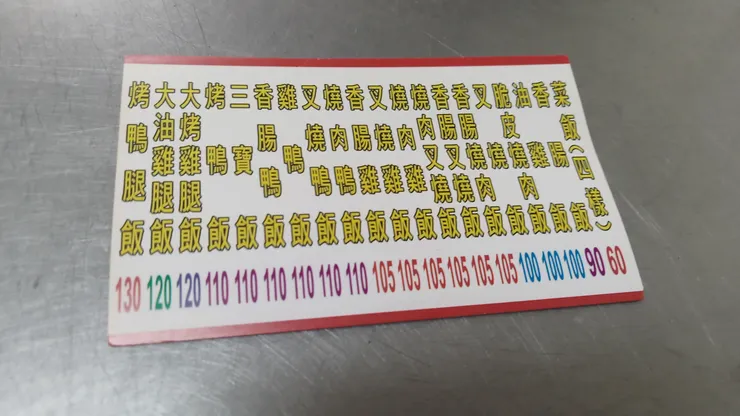 烤鴨腿飯 130
大油雞腿飯 120
大烤雞腿飯 120
烤鴨飯 110
三寶飯 110
香腸鴨飯 110
雞鴨飯 110
叉燒鴨飯 110
燒肉鴨飯 110
香腸雞飯 105
叉燒雞飯 105
燒肉雞飯 105
燒肉叉燒飯 105
香腸叉燒飯 105
香腸燒肉飯 105
叉燒飯 100
脆皮燒肉飯 100
油雞飯 100
香腸飯 90
菜飯(四樣) 60